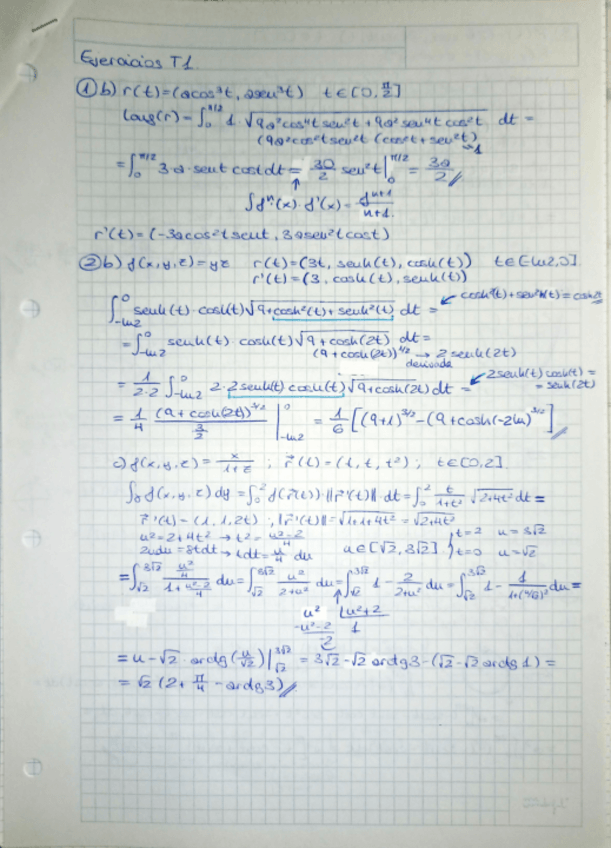 Ejercicios T1
① b) r(t)=(acos³t, asen³t) t∈[0, π/2]
Long(r)=∫₀^{π/2} 1·√(9a²cos⁴t sen²t + 9a² sen⁴t cos²t) dt =
(9a²cos²t sen²t (cos²t+sen²t) →1
=∫₀^{π/2} 3·a·sent cost dt = 3a/2 sen²t |₀^{π/2} = 3a/2
↑
∫fⁿ(x)·f'(x) = fⁿ⁺¹/n+1.
r'(t)=(-3acos²t sent, 3asen²t cost)
② b) f(x,y,z)=yz r(t)=(3t, senh(t), cosh(t)) t∈[-ln2,0].
r'(t)=(3, cosh(t), senh(t))
∫_{-ln2}^0 senh(t)·cosh(t)√(9+cosh²(t)+senh²(t)) dt = ↙ cosh²(t)+senh²(t)=cosh2t
=∫_{-ln2}^0 senh(t)·cosh(t)√(9+cosh(2t)) dt =
(9+cosh(2t))^{1/2} → 2senh(2t)
derivada
= 1/2·2 ∫_{-ln2}^0 2·2senh(t)cosh(t)√(9+cosh(2t)) dt = ↙ 2senh(t)cosh(t)=
= senh(2t)
= 1/4 (9+cosh(2t))^{3/2} / 3/2 |_{-ln2}^0 = 1/6 [(9+1)^{3/2}-(9+cosh(-2ln)^{3/2}]
c) f(x,y,z)= x/1+z ; r⃗(t)=(1,t,t²) ; t∈[0,2].
∫₀ f(x,y,z) dy =∫₀² f(r⃗(t))·||r⃗'(t)|| dt =∫₀² t/1+t² √(2+4t²) dt =
r⃗'(t)=(1,1,2t) ; ||r⃗'(t)||=√(1+1+4t²) = √(2+4t²)
u²=2+4t² → t²= u²-2/4
2udu=8tdt → tdt= u/4 du u∈[√2, 3√2] {t=2 u=3√2
t=0 u=√2
=∫_{√2}^{3√2} u²/4 / 1+ u²-2/4 du =∫_{√2}^{3√2} u²/2+u² du =∫_{√2}^{3√2} 1 - 2/2+u² du =∫_{√2}^{3√2} 1 - 1/1+(u/√2)² du =
↑
u² |u²+2
-u²-2 1
-2
= u-√2·arctg(u/√2)|_{√2}^{3√2} = 3√2-√2 arctg3-(√2-√2 arctg 1) =
= √2 (2+ π/4 -arctg3)